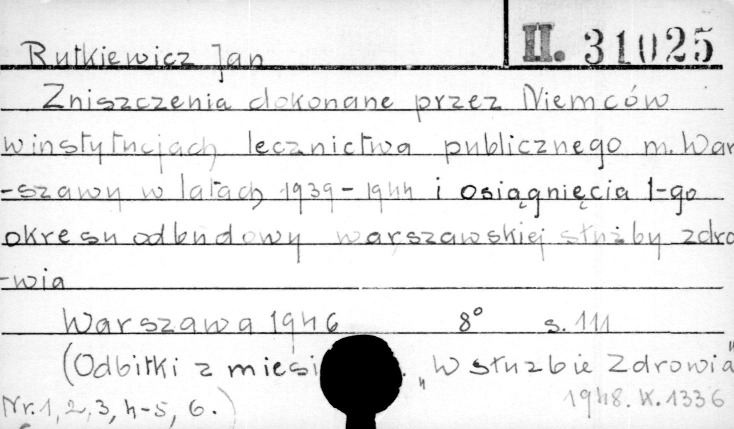 II. 31025
Rutkiewicz Jan
Zniszczenia dokonane przez Niemców
w instytucjach lecznictwa publicznego m. War
-szawy w latach 1939-1944 i osiągnięcia 1-go
okresu odbudowy warszawskiej służby zdro
-wia
Warszawa 1946 8° s. 111
(Odbitki z miesi „W służbie Zdrowia”
Nr. 1, 2, 3, 4-5, 6.) 1948. K. 1336